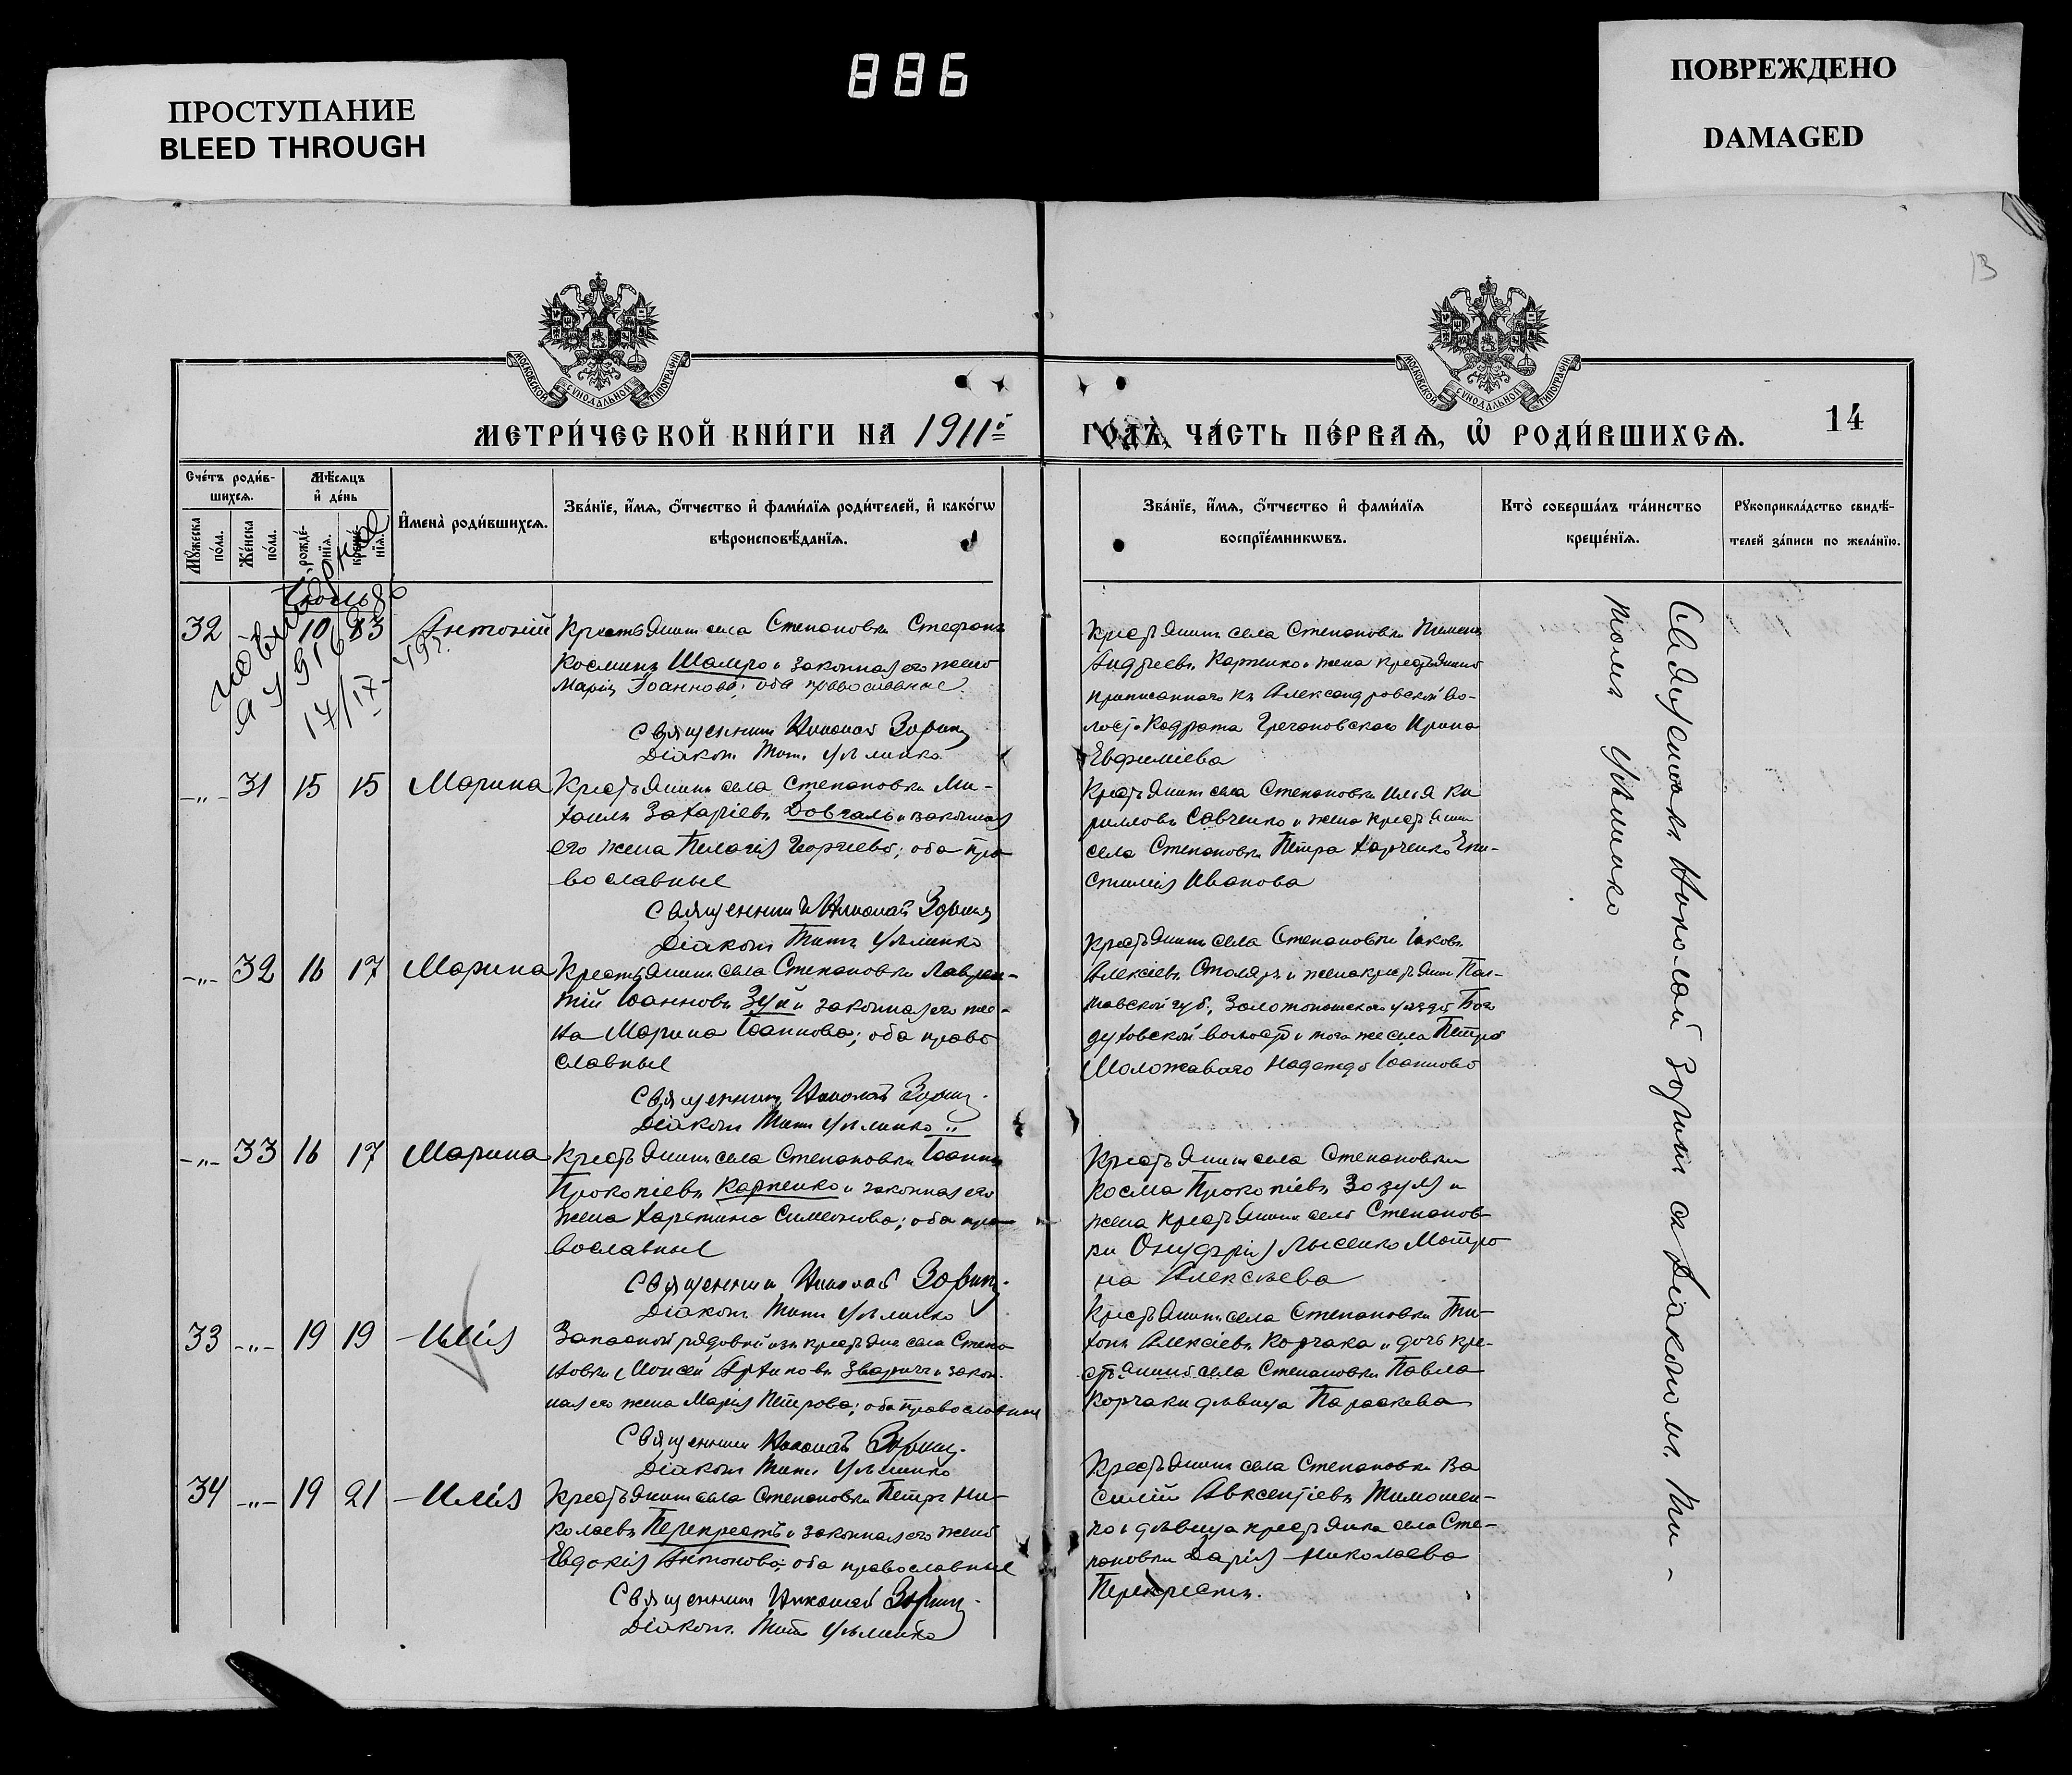 ПРОСТУПАНИЕ
BLEED THROUGH
886
ПОВРЕЖДЕНО
DAMAGED
13
МОСКОВСКОЙ СѴНОДАЛЬНОЙ ТИПОГРАФІИ
МОСКОВСКОЙ СѴНОДАЛЬНОЙ ТИПОГРАФІИ
МЕТРИ́ЧЕСКОЙ КНИ́ГИ НА 1911й
ГО́ДЪ, ЧА́СТЬ ПЕ́РВАѦ, Ѡ҆ РОДИ́ВШИХСѦ.
14
Сче́тъ роди́в-
шихсѧ.
Мꙋ́жеска
по́ла.
Же́нска
по́ла.
Мѣ́сѧцъ
и҆ де́нь
рожде́-
нїѧ.
креще́-
нїѧ.
И҆мена̀ роди́вшихсѧ.
Зва́нїе, и҆́мѧ, ѻ҆́тчество и҆ фами́лїѧ роди́телей, и҆ како́гѡ
вѣроисповѣ́данїѧ.
Зва́нїе, и҆́мѧ, ѻ҆́тчество и҆ фами́лїѧ
воспрїе́мникѡвъ.
Кто̀ соверша́лъ та́инство
креще́нїѧ.
Рꙋкоприкла́дство свидѣ́-
телей за́писи по жела́нїю.
Июль
32 -"- 10 13 Антоній
Крестьянинъ села Степановки Стефанъ
Косминъ Шамро и законная его жена
Марія Іоаннова; оба православные.
Священникъ Николай Зоринъ
Діаконъ Титъ Ульлинко
Крестьянинъ села Степановки Пименъ
Андреевъ Карпенко и жена крестьянина
приписаннаго къ Александровской во-
лости Кодрата Гречановскаго Ирина
Евфиміева
-"- 31 15 15 Марина
Крестьянинъ села Степановки Ми-
хаилъ Захаріевъ Довгаль и законная
его жена Пелагія Георгіева; оба пра-
вославные
Священникъ Николай Зоринъ
Діаконъ Титъ Ульлинко
Крестьянинъ села Степановки Илья Ки
рилловъ Савченко и жена крестьянина
села Степановки Петра Харченко Епи-
стимія Иванова
-"- 32 16 17 Марина
Крестьянинъ села Степановки Лаврен-
тій Іоанновъ Зуй и законная его же-
на Марина Іоаннова; оба право
славные
Священникъ Николай Зоринъ.
Діаконъ Титъ Ульлинко
Крестьянинъ села Степановки Іаковъ
Алексіевъ Столяръ и жена крестьянина Пол-
тавской губ., Золотоношскаго уѣзда Бого
духовской волости и того же села Петра
Моложаваго Надежда Іоаннова
-"- 33 16 17 Марина
Крестьянинъ села Степановки Іоаннъ
Прокопіевъ Карпенко и законная его
жена Харетина Симеонова; оба пра-
вославные
Священникъ Николай Зоринъ.
Діаконъ Титъ Ульлинко
Крестьянинъ села Степановки
Косма Прокопіевъ Зозуля и
жена крестьянина села Степанов-
ки Онуфрія Лысенко Матро
на Алексѣева
33 -"- 19 19 Илія
Запасной рядовой изъ крестьянъ села Степа
новки Моисей Звaричъ и закон-
ная его жена Марія Петрова; оба православные
Священникъ Николай Зоринъ.
Діаконъ Титъ Ульлинко
Крестьянинъ села Степановки Ти-
хонъ Алексіевъ Корчака и дочь кре-
стьянина села Степановки Павла
Корчаки дѣвица Параскева
34 -"- 19 21 Илія
Крестьянинъ села Степановки Петръ Ни-
колаевъ Перекрестъ и законная его жена
Евдокія Антонова; оба православные
Священникъ Николай Зоринъ.
Діаконъ Титъ Ульлинко
Крестьянинъ села Степановки Ва
силій Авксентіевъ Тимошен-
ко и дѣвица крестьянка села Сте-
пановки Дарія Николаева
Перекрестъ.
Священникъ Николай Зоринъ съ діакономъ Ти-
томъ Ульлинко